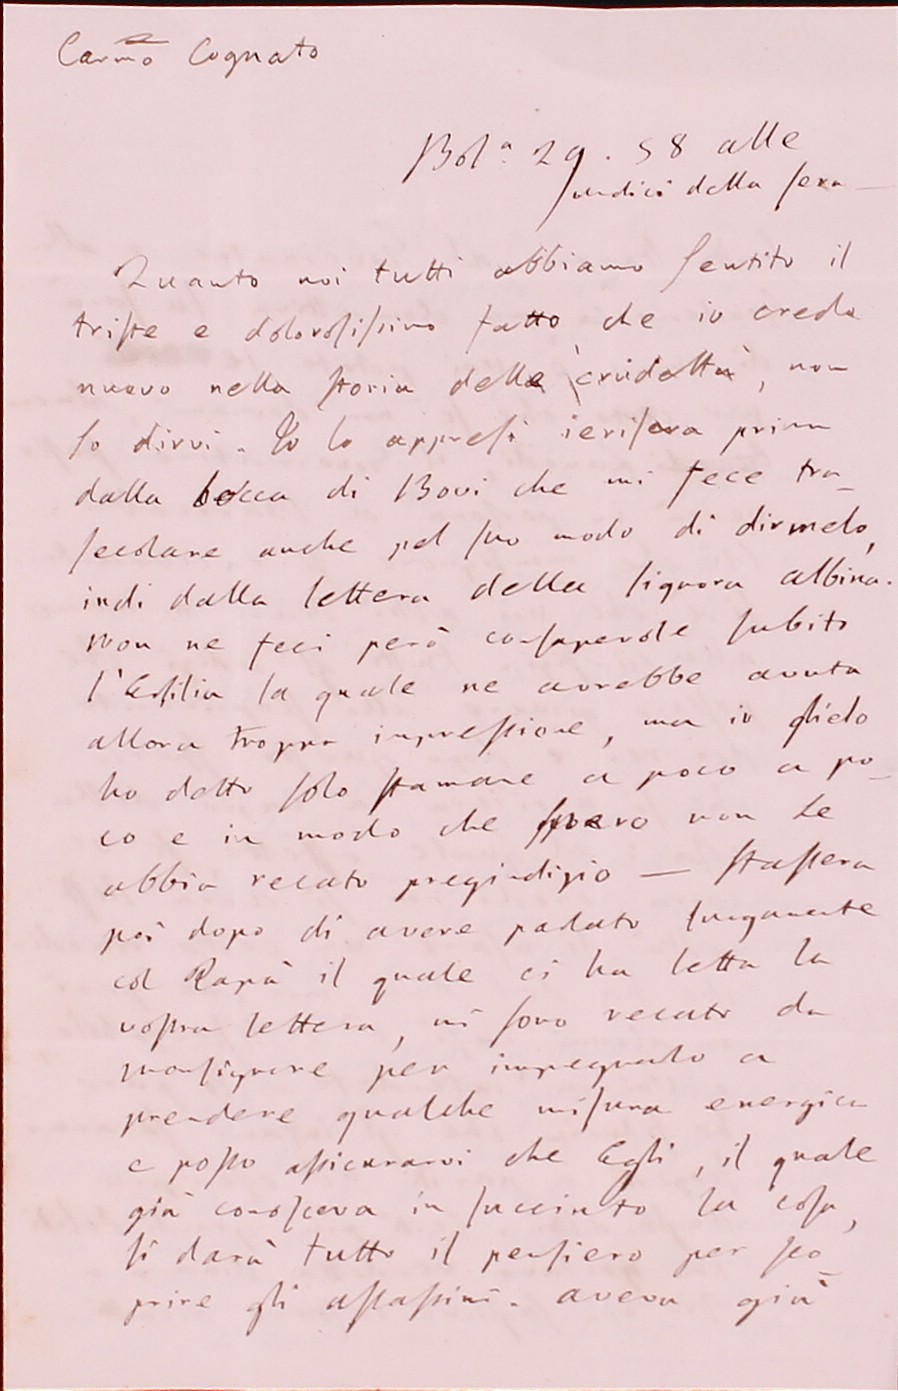 Carmo Cognato
Bola 29. 58 alle
undici della sera —
Quanto noi tutti abbiamo sentito il
triste e dolorosissimo fatto che io credo
nuovo nella storia delle crudeltà, non
so dirvi. Io lo appresi ierisera prima
dalla bocca di Bovi che mi fece tra-
secolare anche pel suo modo di dirmelo,
indi dalla lettera della signora albina.
Non ne feci però consapevole subito
l'Ersilia la quale ne avrebbe avuta
allora troppa impressione, ma io glielo
ho detto solo stamane a poco a po-
co e in modo che spero non le
abbia recato pregiudizio — stassera
poi dopo di avere parlato lungamente
col Papà il quale ci ha letta la
vostra lettera, mi sono recato da
monsignore per impegnarlo a
prendere qualche misura energica
e posso assicurarvi che Egli, il quale
già conosceva in succinto la cosa,
si darà tutto il pensiero per sco-
prire gli assassini. aveva già